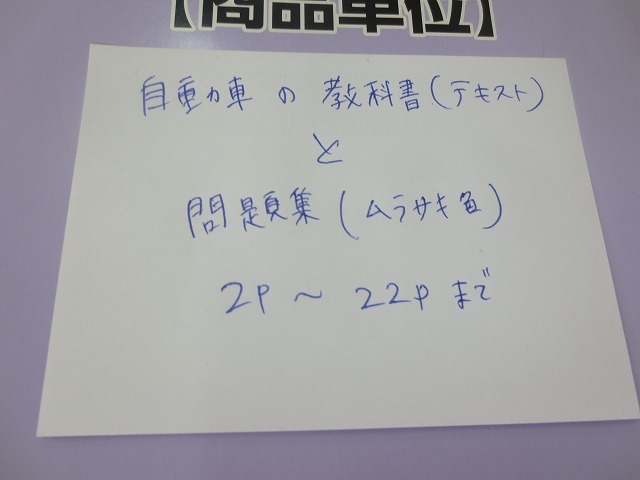 【商品単位】
自動車の教科書(テキスト)
と
問題集(ムラサキ色)
2P～22Pまで